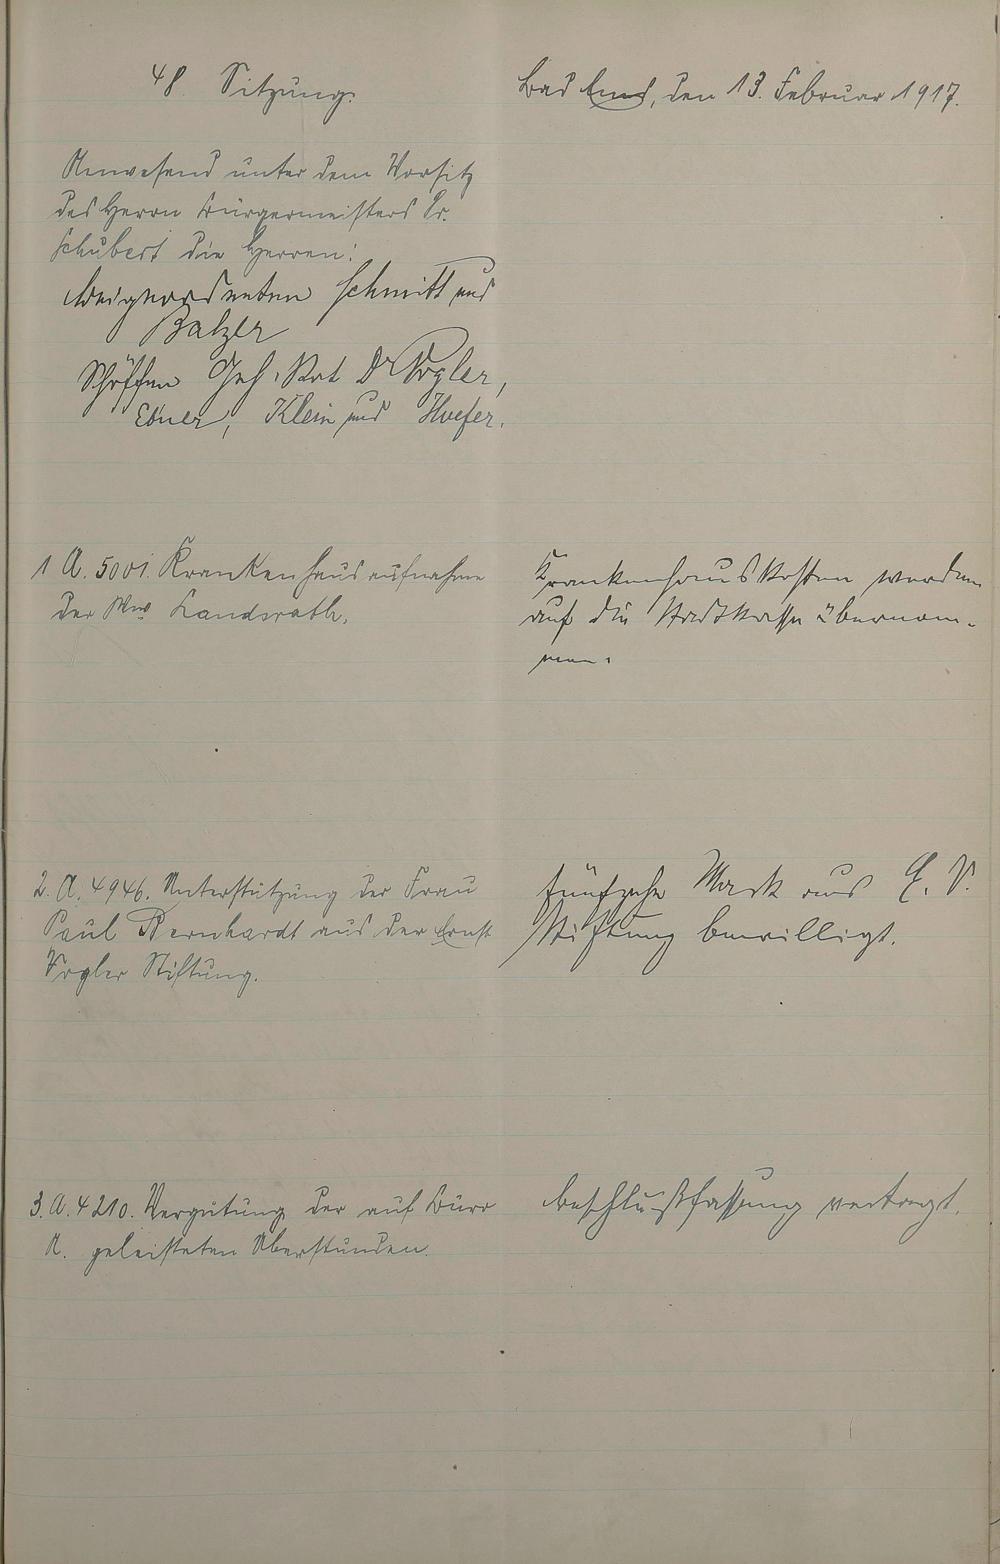 48. Sitzung.
Bad Ems, den 13. Februar 1917.
Anwesend unter dem Vorsitz
des Herrn Bürgermeisters Dr.
Schubert die Herren:
Beigeordneten Schmitt und
Balzer
Schöffen Geh. Rat Dr Vogler,
Ebner, Klein und Hoefer.
1 A. 5001. Krankenhausaufnahme
der Ww Landsrath.
Krankenhauskosten werden
auf die Stadtkasse übernom-
men.
2. A. 4946. Unterstützung der Frau
Paul Bernhardt aus der Ernst
Vogler Stiftung.
fünfzehn Mark aus E. V.
Stiftung bewilligt.
3. A. 4210. Vergütung der auf Büro
A. geleisteten Überstunden.
Beschlußfassung vertagt.